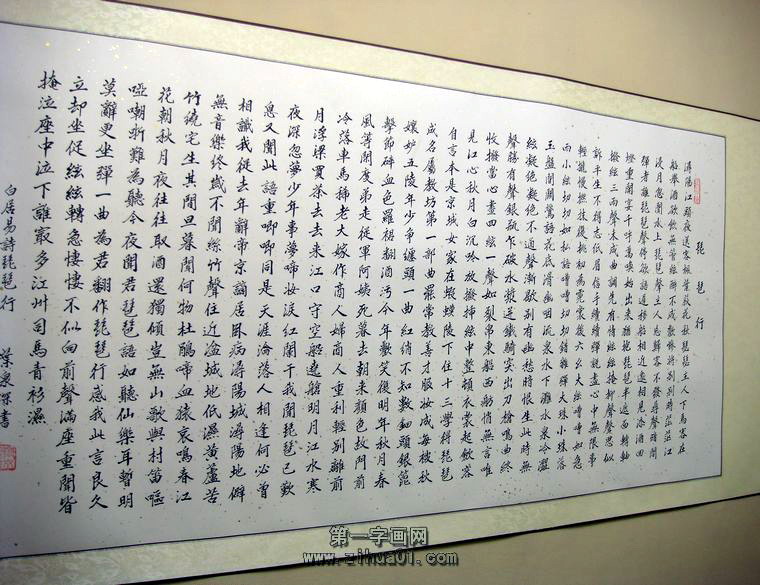 琵琶行
潯陽江頭夜送客楓葉荻花秋瑟瑟主人下馬客在
船舉酒欲飲無管絃醉不成歡慘將別別時茫茫江
浸月忽聞水上琵琶聲主人忘歸客不發尋聲暗問
彈者誰琵琶聲停欲語遲移船相近邀相見添酒回
燈重開宴千呼萬喚始出來猶抱琵琶半遮面轉軸
撥絃三兩聲未成曲調先有情絃絃掩抑聲聲思似
訴平生不得志低眉信手續續彈說盡心中無限事
輕攏慢撚抹復挑初為霓裳後六么大絃嘈嘈如急
雨小絃切切如私語嘈嘈切切錯雜彈大珠小珠落
玉盤間關鶯語花底滑幽咽泉流水下灘水泉冷澀
絃凝絕凝絕不通聲漸歇別有幽愁暗恨生此時無
聲勝有聲銀瓶乍破水漿迸鐵騎突出刀槍鳴曲終
收撥當心畫四絃一聲如裂帛東船西舫悄無言唯
見江心秋月白沉吟放撥插絃中整頓衣裳起斂容
自言本是京城女家在蝦蟆陵下住十三學得琵琶
成名屬教坊第一部曲罷常教善才服妝成每被秋
孃妒五陵年少爭纏頭一曲紅綃不知數鈿頭銀篦
擊節碎血色羅裙翻酒污今年歡笑復明年秋月春
風等閒度弟走從軍阿姨死暮去朝來顏色故門前
冷落車馬稀老大嫁作商人婦商人重利輕別離前
月浮梁買茶去去來江口守空船遶艙明月江水寒
夜深忽夢少年事夢啼妝淚紅闌干我聞琵琶已歎
息又聞此語重唧唧同是天涯淪落人相逢何必曾
相識我從去年辭帝京謫居臥病潯陽城潯陽地僻
無音樂終歲不聞絲竹聲住近湓城地低濕黃蘆苦
竹繞宅生其間旦暮聞何物杜鵑啼血猿哀鳴春江
花朝秋月夜往往取酒還獨傾豈無山歌與村笛嘔
啞嘲哳難為聽今夜聞君琵琶語如聽仙樂耳暫明
莫辭更坐彈一曲為君翻作琵琶行感我此言良久
立却坐促絃絃轉急悽悽不似向前聲滿座重聞皆
掩泣座中泣下誰最多江州司馬青衫濕
白居易詩琵琶行 葉深書
第一字画网
www.zihua01.com